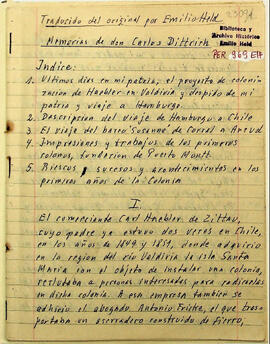 Traducido del original por Emilio Held
Memorias de don Carlos Dittrich
Biblioteca y
Archivo Histórico
Emilio Held
PER 969 ETA
Indice:
1. Ultimos dias en mi patria, el proyecto de coloni-
zacion de Haebler en Valdivia y despido de mi
patria y viaje a Hamburgo.
2. Descripcion del viaje de Hamburgo a Chile
3. El viaje del barco "Susanne" de Corral a Ancud
4. Impresiones y trabajos de los primeros
colonos, fundacion de Puerto Montt
5. Riesgos, sucesos y acontecimientos en los
primeros años de la Colonia
I.
El comerciante Carl Haebler de Zittau,
cuyo padre ya estuvo dos veces en Chile,
en los años de 1849 y 1851, donde adquirio
en la region del rio Valdivia la isla Santa
Maria con el objeto de instalar una colonia,
reclutaba a personas interesadas para radicarlas
en dicha colonia. A esa empresa tambien se
adhirio el abogado Antonio Fritze, el que trans-
portaba un aserradero construido de fierro,